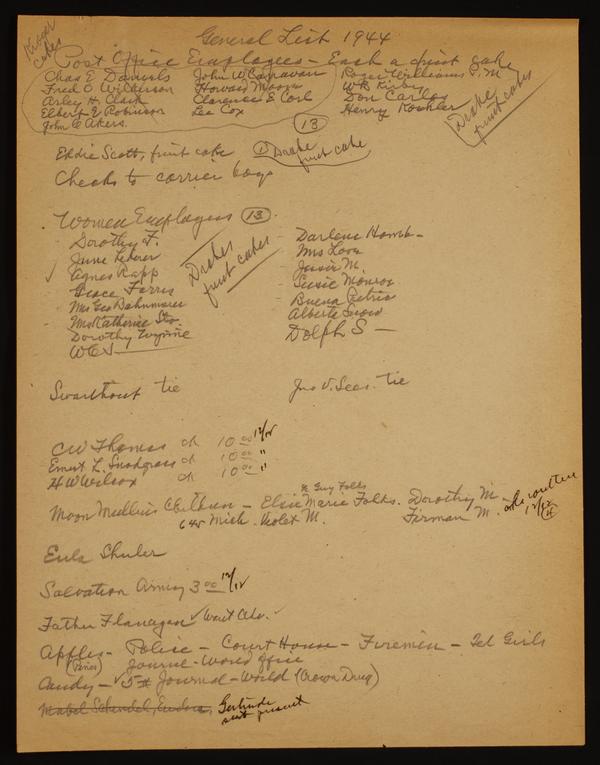 General List 1944
Post Office Employees - Each a fruit cake
Chas E Daniels
Fred O Wilkerson
Arley H. Clark
Elbert E Robinson
John C Akers
John W Canavan
Howard Moore
Clarence E Corl
Lee Cox
Roger Williams P.M
WR Kirby
Don Carlos
Henry Koehler
13
Drake fruit cakes
Eddie Scott, fruit cake 1 Drake fruit cake
Checks to carrier boys
Women Employees 13
Dorothy F.
June Lederer
✓ Agnes Rapp
Grace Ferris
Mrs Geo Bahnmaier
Mrs Katherine
Dorothy
Drakes fruit cakes
Darlene
Mrs
Susie M.
Susie Monroe
Buena
Alberta
Dolph S -
Swarthout tie
Jno V. Sees. tie
CW Thomas ck 10 00 12/15
Ernest L. Snodgrass ck 10 00 "
HW Wilcox ck 10 00 "
& Guy Folks
Moon Mullins - Elsie Marie Folks. Dorothy M -
645 Mich. Violet M. Firman M.
Eula Shuler
Salvation Army 3 00 12/12
Father Flanagan ✓ Want Adv. ✓
Apples - Police - Court House - Firemen - Tel Girls
Journal-World office
Candy - ✓ 5# Journal-World (Crown Drug)
Mabel Gertrude
sent present